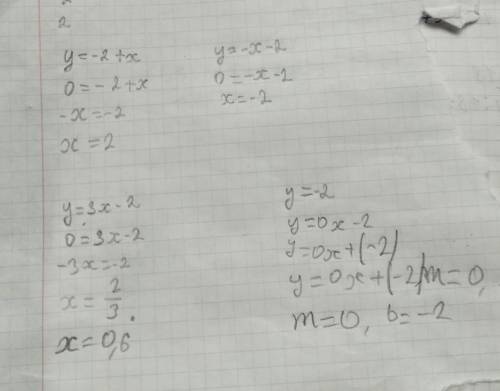 2
y=-2+x
0=-2+x
-x=-2
x=2
y=-x-2
0=-x-2
x=-2
y=3x-2
0=3x-2
-3x=-2
x=2/3.
x=0,6
y=-2
y=0x-2
y=0x+(-2)
y=0x+(-2) m=0,
m=0, b=-2